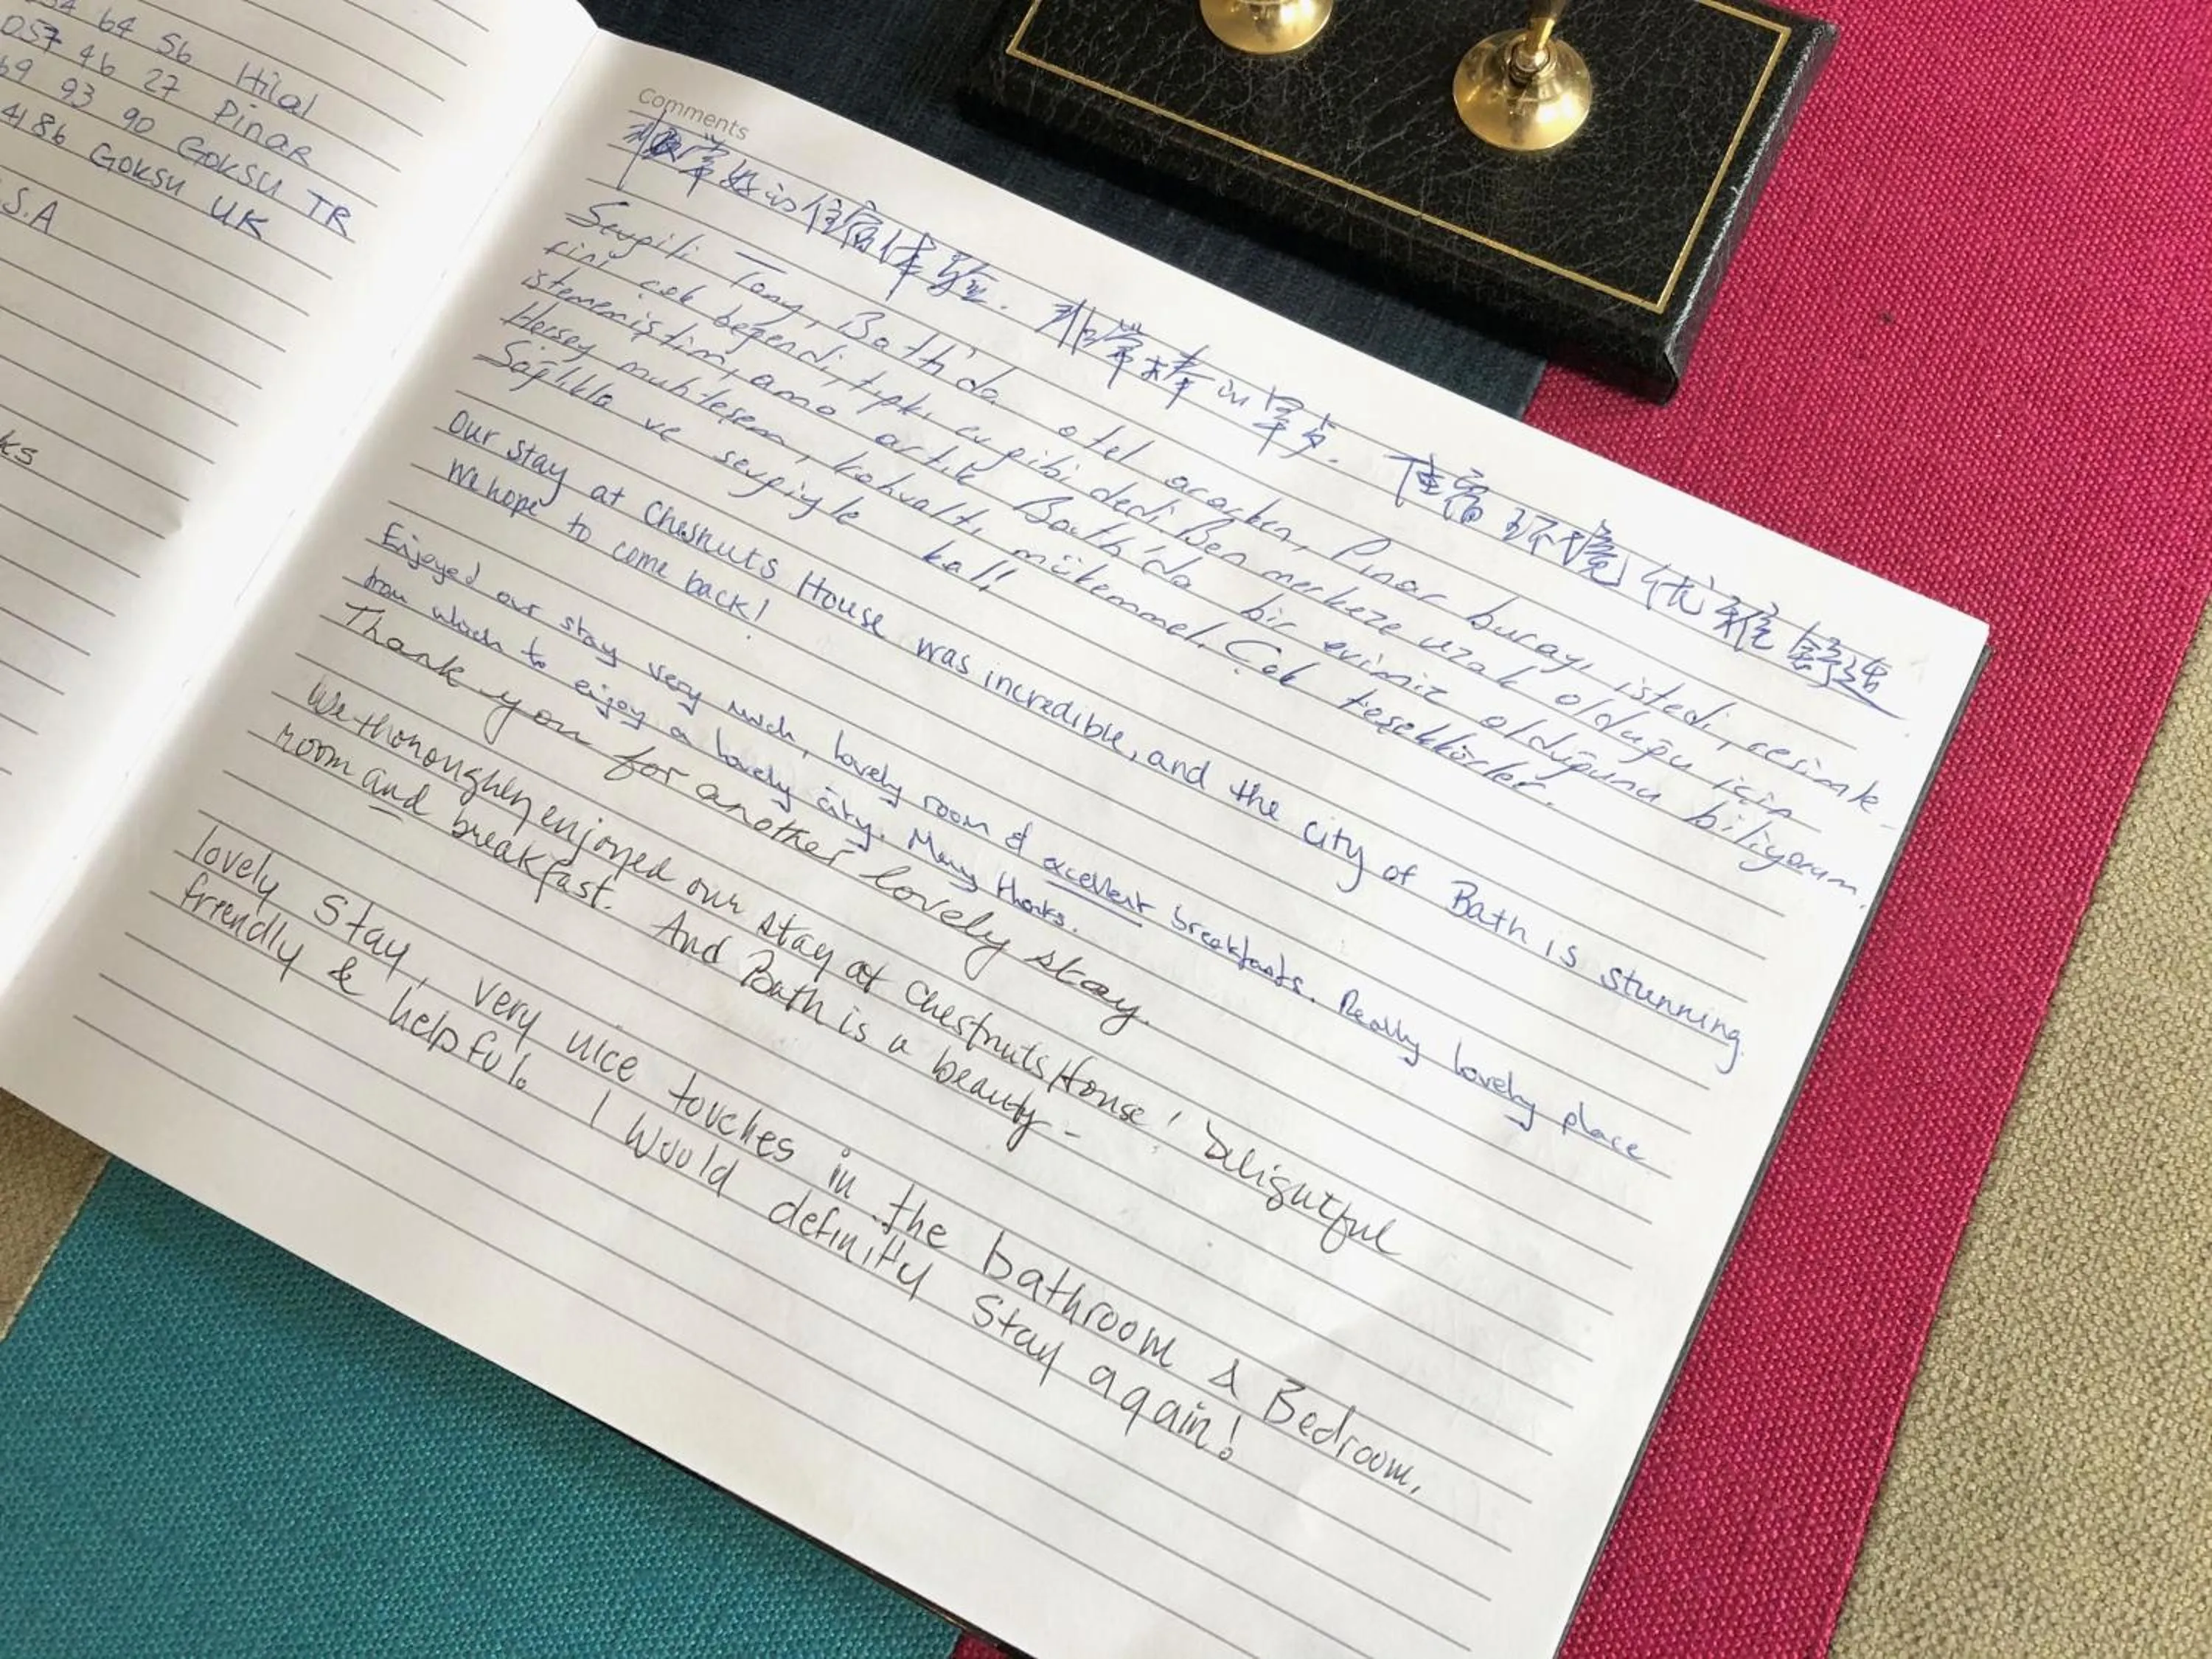 64 56 Hilal
057 46 27 Pinar
69 93 90 GOKSU TR
4186 GOKSU UK
S.A
ks
Comments
非常好的住宿体验. 非常棒的早点. 住宿环境优雅舒适
Sevgili Tony, Bath'da otel ararken, Pınar burayı istedi, resimle-
rini çok beğendi, tıpkı ev gibi dedi. Ben merkeze uzak olduğu için
istememiştim, ama artık Bath'da bir evimiz olduğunu biliyorum.
Herşey muhteşem, kahvaltı mükemmel. Çok teşekkürler.
Sağlıkla ve sevgiyle kal!
Our stay at Chesnuts House was incredible, and the city of Bath is stunning.
We hope to come back!
Enjoyed our stay very much, lovely room & excellent breakfasts. Really lovely place
from which to enjoy a lovely city. Many thanks.
Thank you for another lovely stay.
We thoroughly enjoyed our stay at Chestnuts House! Delightful
room and breakfast. And Bath is a beauty -
lovely stay, very nice touches in the bathroom & Bedroom,
friendly & helpful. I would definitly stay again!